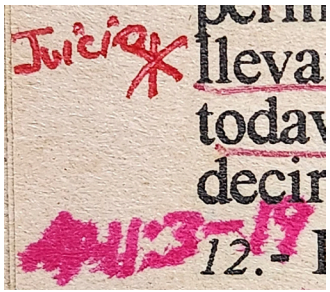 Juicio*
lleva
todav
decir
:3-19
12.-